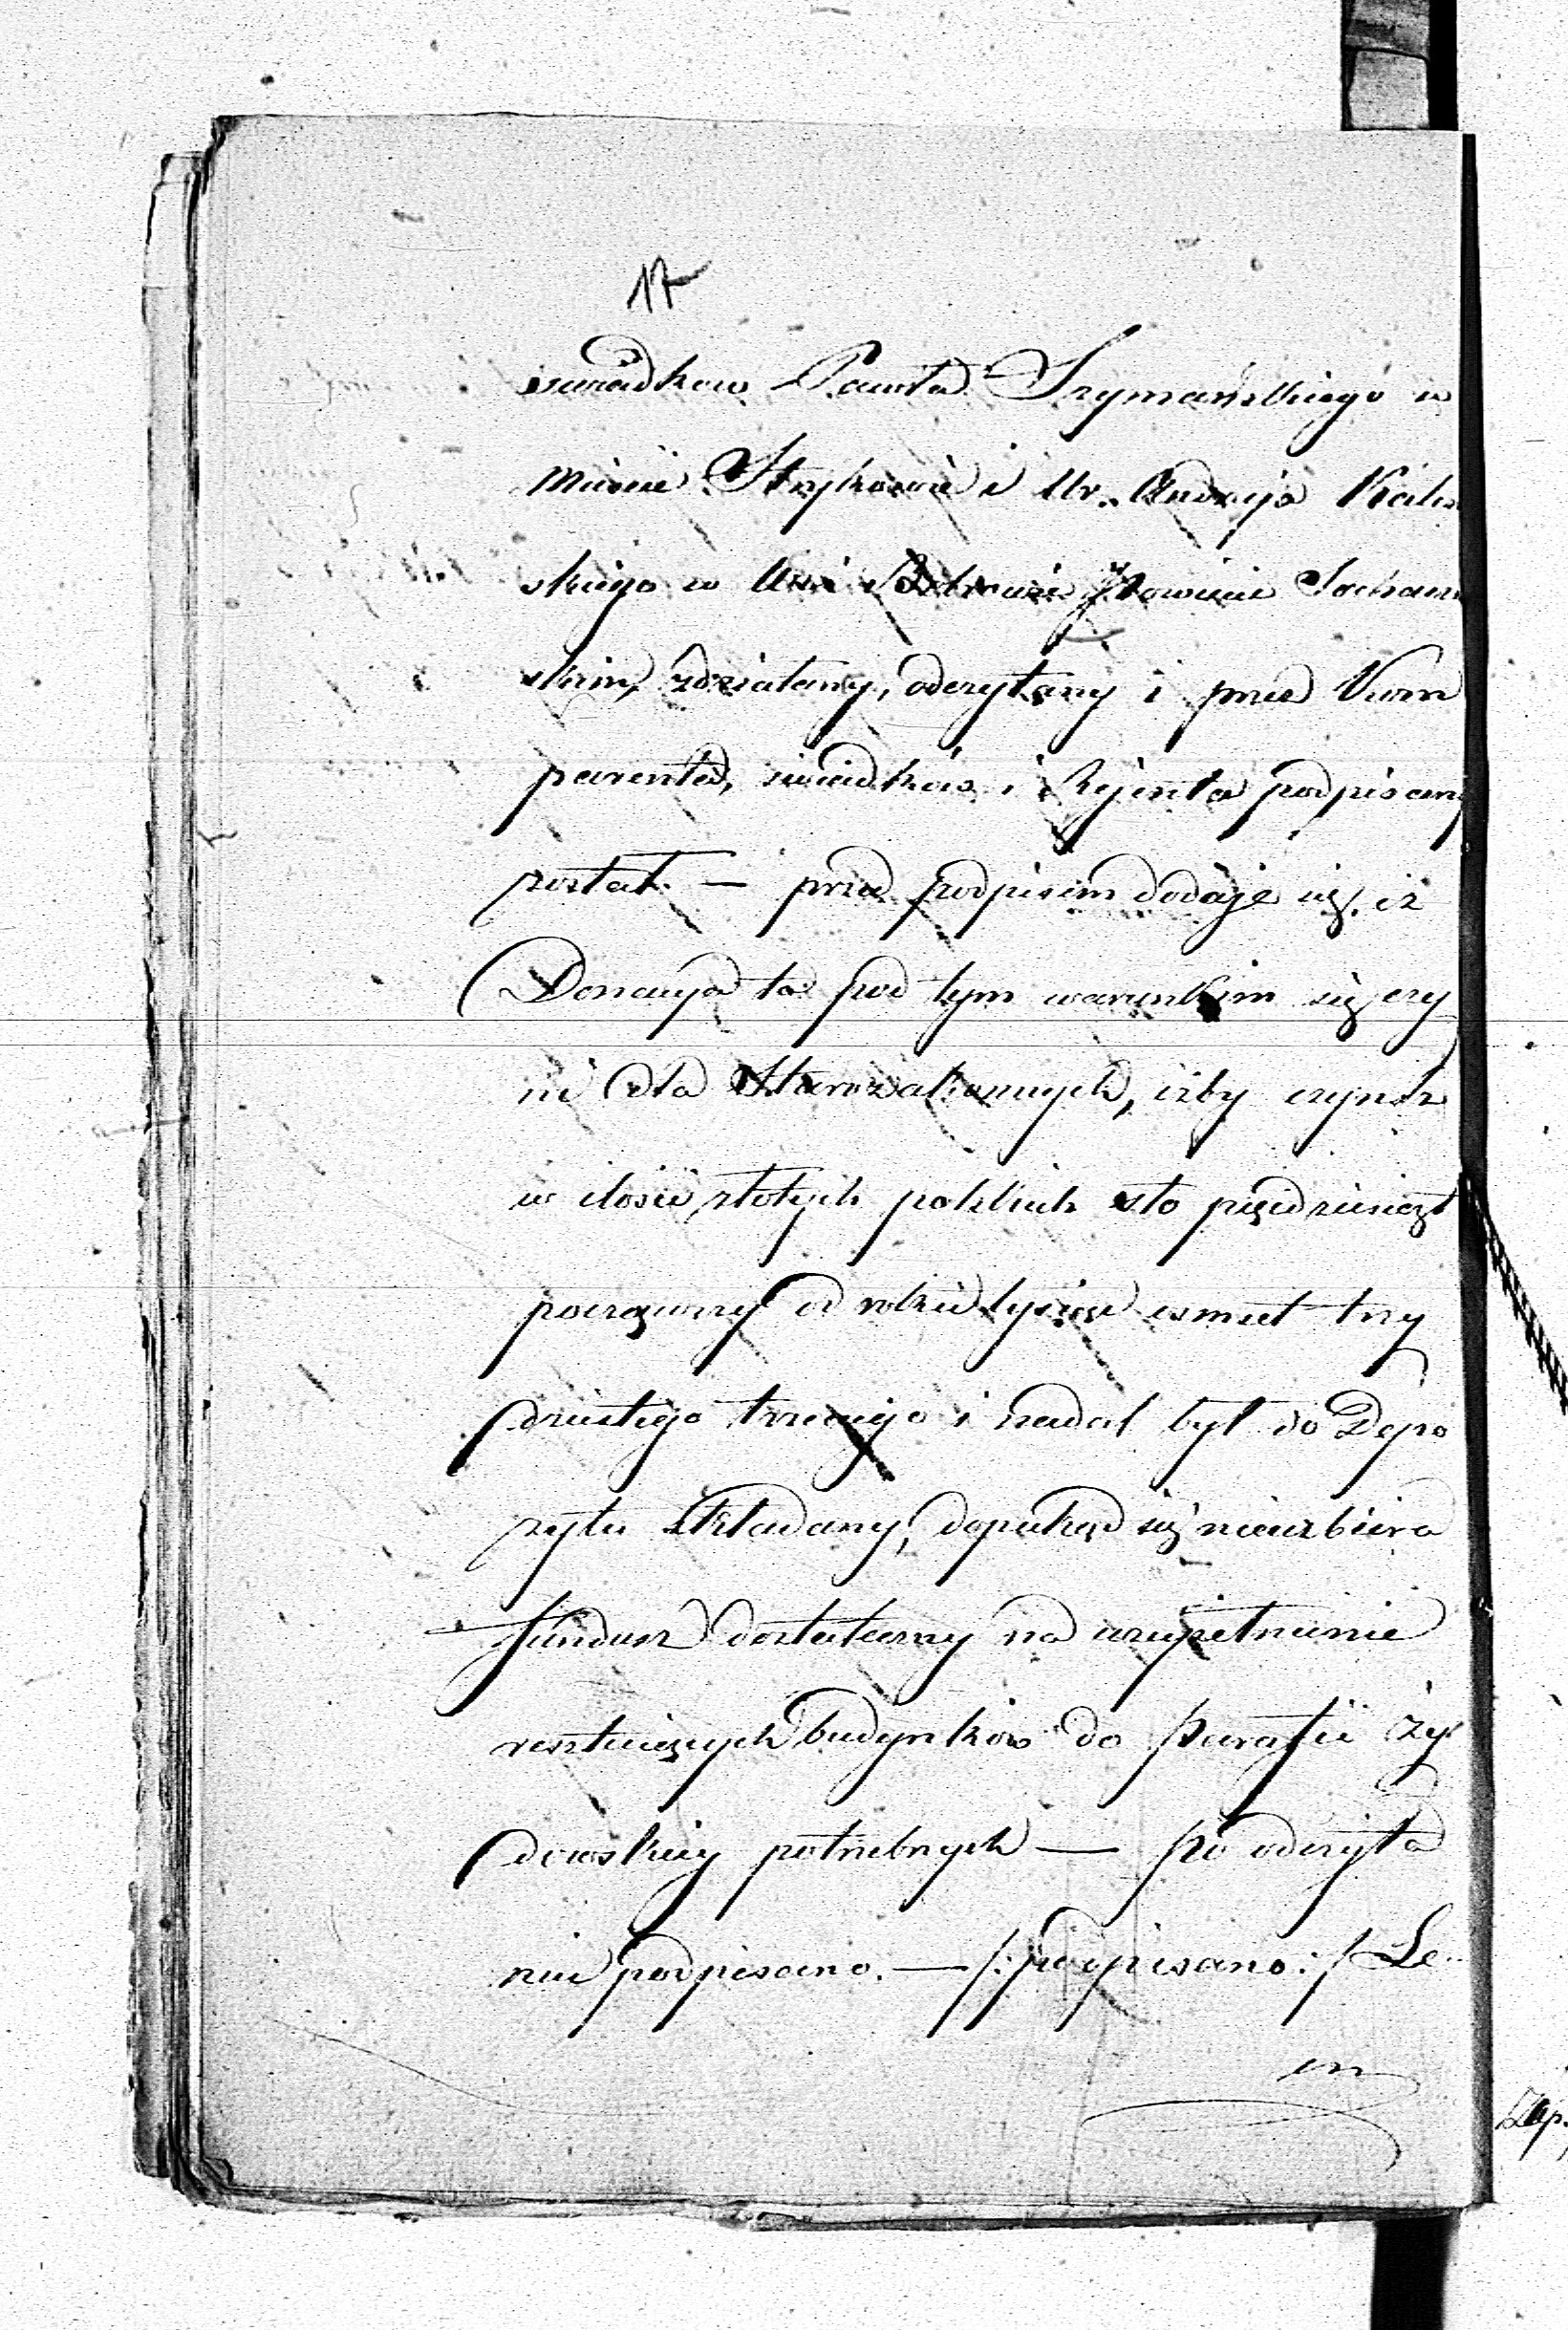 17
swiadkow Pawła Szymańskiego w
Mieście Strykowie i Ur. Andrzeja Kaliń
skiego w Wsi Powiecie Sochacze
skim, zdziałany, odczytany i przez Kom
parenta, swiadków i Rejenta podpisany
został. — przed podpisem dodaje się, iż
Donacya ta pod tym warunkiem się czy
ni dla Starozakonnych, iżby czynsz
w ilości złotych polskich sto pięćdziesiąt
począwszy od roku tysiąc osmset trzy
dziestego trzeciego i nadal był do Depo
zytu składany, dopokąd się nieuzbiera
fundusz dostateczny na uzupełnienie
resztujących budynków do Parafii Ży
dowskiey potrzebnych — po odczyta
niu podpisano. — /: podpisano :/ Le